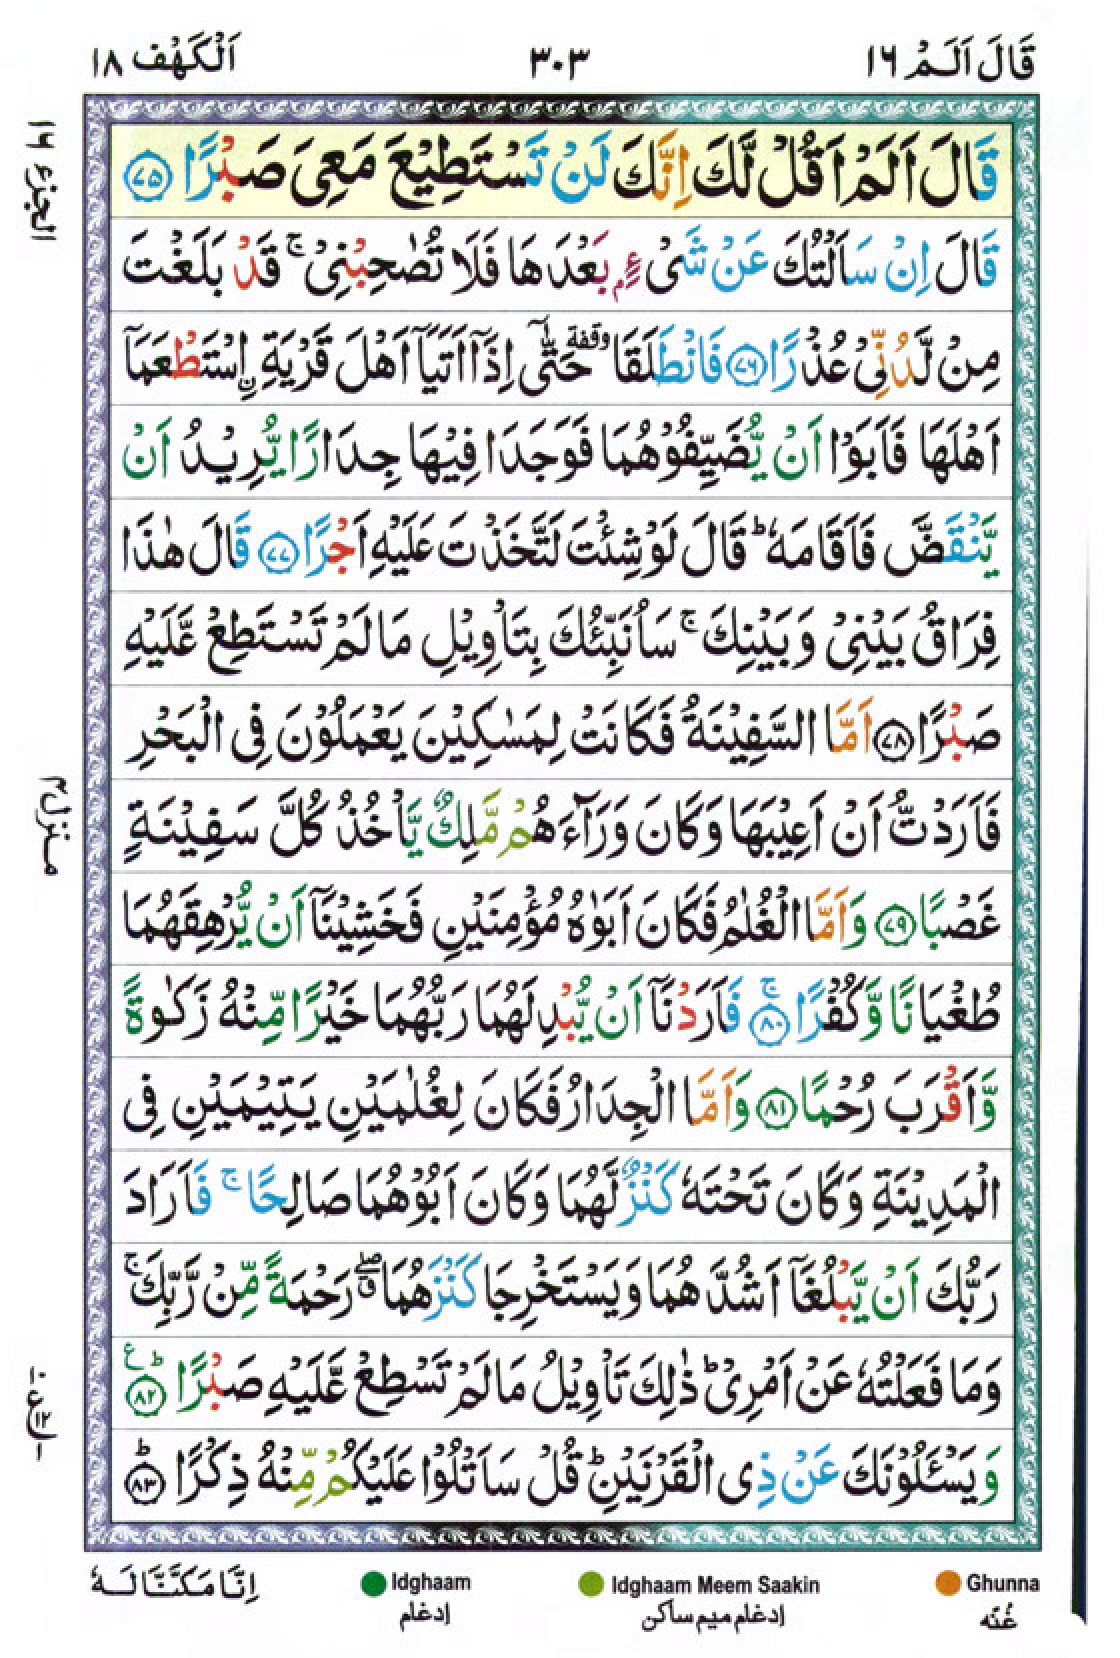 قَالَ اَلَمْ ١٦ ٣٠٣ اَلْكَهْف ١٨
الجزء ١٦
قَالَ اَلَمْ اَقُلْ لَّكَ اِنَّكَ لَنْ تَسْتَطِيْعَ مَعِىَ صَبْرًا ﴿٧٥﴾
قَالَ اِنْ سَاَلْتُكَ عَنْ شَىْءٍۭ بَعْدَهَا فَلَا تُصٰحِبْنِىْ ۚ قَدْ بَلَغْتَ
مِنْ لَّدُنِّىْ عُذْرًا ﴿٧٦﴾ فَانْطَلَقَا وقفة حَتّٰٓى اِذَآ اَتَيَآ اَهْلَ قَرْيَةِ ِۨاسْتَطْعَمَآ
اَهْلَهَا فَاَبَوْا اَنْ يُّضَيِّفُوْهُمَا فَوَجَدَا فِيْهَا جِدَارًا يُّرِيْدُ اَنْ
يَّنْقَضَّ فَاَقَامَهٗ ؕ قَالَ لَوْ شِئْتَ لَتَّخَذْتَ عَلَيْهِ اَجْرًا ﴿٧٧﴾ قَالَ هٰذَا
فِرَاقُ بَيْنِىْ وَبَيْنِكَ ۚ سَاُنَبِّئُكَ بِتَاْوِيْلِ مَا لَمْ تَسْتَطِعْ عَّلَيْهِ
صَبْرًا ﴿٧٨﴾ اَمَّا السَّفِيْنَةُ فَكَانَتْ لِمَسٰكِيْنَ يَعْمَلُوْنَ فِى الْبَحْرِ
منزل ٤
فَاَرَدْتُّ اَنْ اَعِيْبَهَا وَكَانَ وَرَآءَهُمْ مَّلِكٌ يَّاْخُذُ كُلَّ سَفِيْنَةٍ
غَصْبًا ﴿٧٩﴾ وَاَمَّا الْغُلٰمُ فَكَانَ اَبَوٰهُ مُؤْمِنَيْنِ فَخَشِيْنَآ اَنْ يُّرْهِقَهُمَا
طُغْيَانًا وَّكُفْرًا ۚ ﴿٨٠﴾ فَاَرَدْنَآ اَنْ يُّبْدِلَهُمَا رَبُّهُمَا خَيْرًا مِّنْهُ زَكٰوةً
وَّاَقْرَبَ رُحْمًا ﴿٨١﴾ وَاَمَّا الْجِدَارُ فَكَانَ لِغُلٰمَيْنِ يَتِيْمَيْنِ فِى
الْمَدِيْنَةِ وَكَانَ تَحْتَهٗ كَنْزٌ لَّهُمَا وَكَانَ اَبُوْهُمَا صَالِحًا ۚ فَاَرَادَ
رَبُّكَ اَنْ يَّبْلُغَآ اَشُدَّهُمَا وَيَسْتَخْرِجَا كَنْزَهُمَا ۖ رَحْمَةً مِّنْ رَّبِّكَ ۚ
وَمَا فَعَلْتُهٗ عَنْ اَمْرِىْ ؕ ذٰلِكَ تَاْوِيْلُ مَا لَمْ تَسْطِعْ عَّلَيْهِ صَبْرًا ؕ ﴿٨٢﴾ ع
وَيَسْـَٔلُوْنَكَ عَنْ ذِى الْقَرْنَيْنِ ؕ قُلْ سَاَتْلُوْا عَلَيْكُمْ مِّنْهُ ذِكْرًا ؕ ﴿٨٣﴾
Ghunna Idghaam Meem Saakin Idghaam اِنَّا مَكَّنَّا لَهٗ
غُنّه ادغام ميم ساكن ادغام